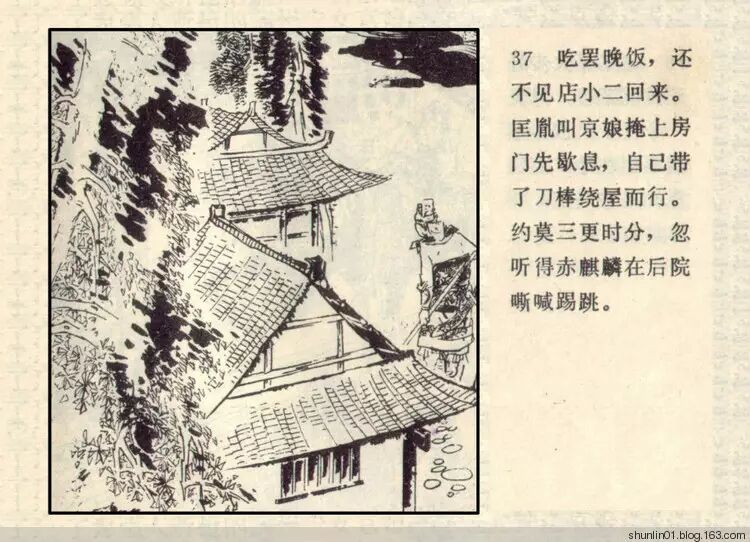 37 吃罢晚饭，还
不见店小二回来。
匡胤叫京娘掩上房
门先歇息，自己带
了刀棒绕屋而行。
约莫三更时分，忽
听得赤麒麟在后院
嘶喊踢跳。
shunlin01.blog.163.com